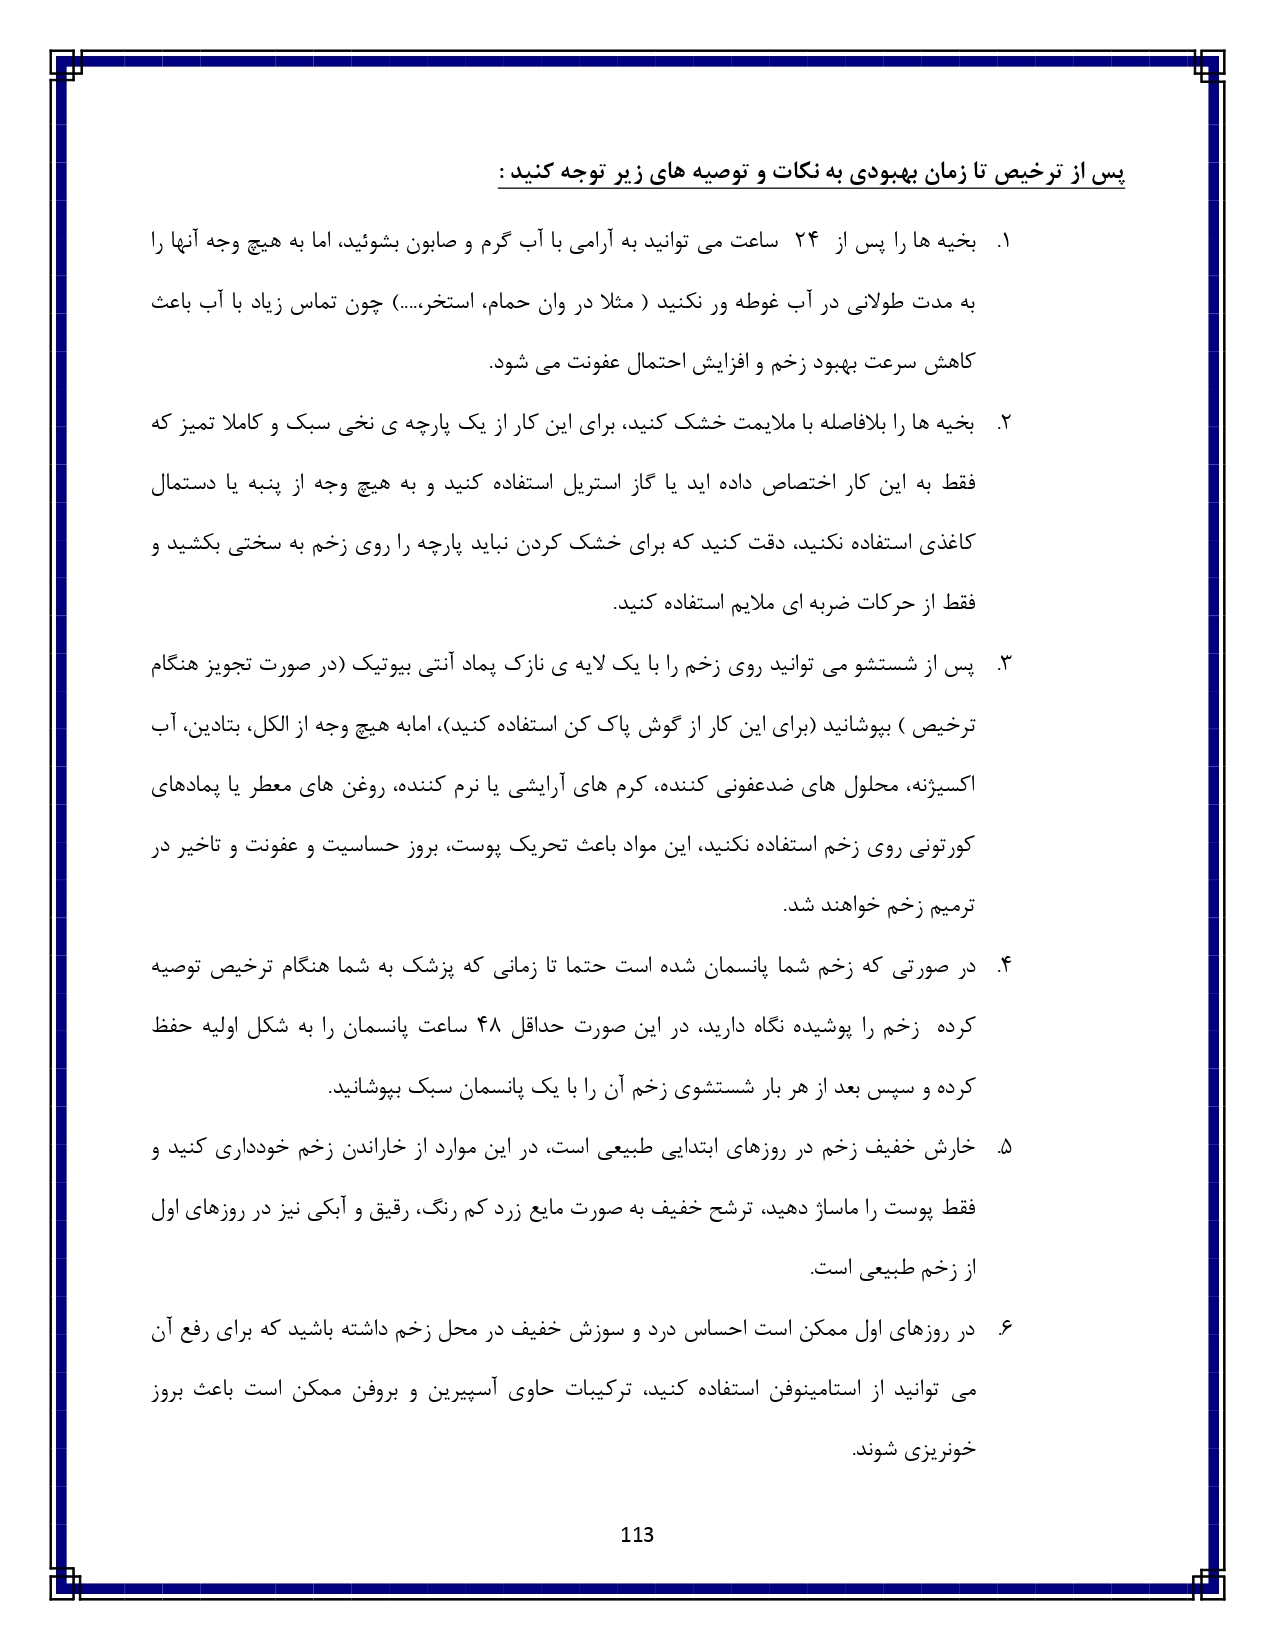 پس از ترخیص تا زمان بهبودی به نکات و توصیه های زیر توجه کنید :
۱. بخیه ها را پس از ۲۴ ساعت می توانید به آرامی با آب گرم و صابون بشوئید، اما به هیچ وجه آنها را
به مدت طولانی در آب غوطه ور نکنید ( مثلا در وان حمام، استخر،....) چون تماس زیاد با آب باعث
کاهش سرعت بهبود زخم و افزایش احتمال عفونت می شود.
۲. بخیه ها را بلافاصله با ملایمت خشک کنید، برای این کار از یک پارچه ی نخی سبک و کاملا تمیز که
فقط به این کار اختصاص داده اید یا گاز استریل استفاده کنید و به هیچ وجه از پنبه یا دستمال
کاغذی استفاده نکنید، دقت کنید که برای خشک کردن نباید پارچه را روی زخم به سختی بکشید و
فقط از حرکات ضربه ای ملایم استفاده کنید.
۳. پس از شستشو می توانید روی زخم را با یک لایه ی نازک پماد آنتی بیوتیک (در صورت تجویز هنگام
ترخیص ) بپوشانید (برای این کار از گوش پاک کن استفاده کنید)، امابه هیچ وجه از الکل، بتادین، آب
اکسیژنه، محلول های ضدعفونی کننده، کرم های آرایشی یا نرم کننده، روغن های معطر یا پمادهای
کورتونی روی زخم استفاده نکنید، این مواد باعث تحریک پوست، بروز حساسیت و عفونت و تاخیر در
ترمیم زخم خواهند شد.
۴. در صورتی که زخم شما پانسمان شده است حتما تا زمانی که پزشک به شما هنگام ترخیص توصیه
کرده زخم را پوشیده نگاه دارید، در این صورت حداقل ۴۸ ساعت پانسمان را به شکل اولیه حفظ
کرده و سپس بعد از هر بار شستشوی زخم آن را با یک پانسمان سبک بپوشانید.
۵. خارش خفیف زخم در روزهای ابتدایی طبیعی است، در این موارد از خاراندن زخم خودداری کنید و
فقط پوست را ماساژ دهید، ترشح خفیف به صورت مایع زرد کم رنگ، رقیق و آبکی نیز در روزهای اول
از زخم طبیعی است.
۶. در روزهای اول ممکن است احساس درد و سوزش خفیف در محل زخم داشته باشید که برای رفع آن
می توانید از استامینوفن استفاده کنید، ترکیبات حاوی آسپیرین و بروفن ممکن است باعث بروز
خونریزی شوند.
113